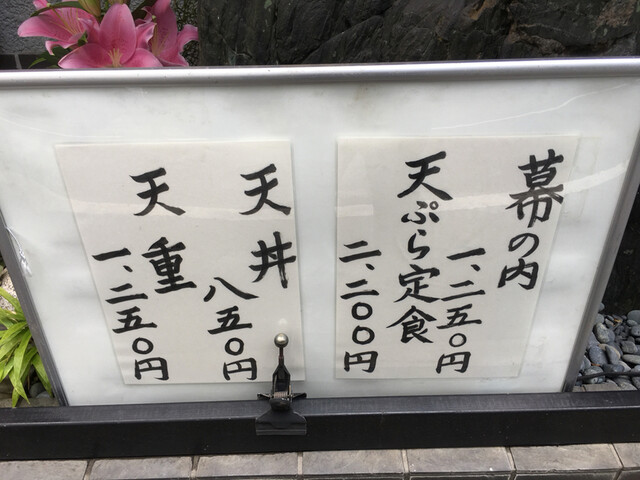 幕の内
一、二五〇円
天ぷら定食
二、二〇〇円
天丼
八五〇円
天重
一、二五〇円